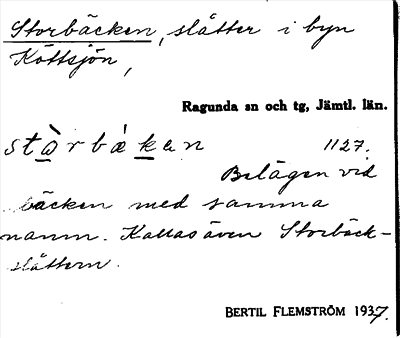 Storbäcken, slåtter i byn
Köttsjön,
Ragunda sn och tg, Jämtl. län.
stò̱rbáḵen 1127.
Belägen vid
bäcken med samma
namn. Kallas även Storbäck-
slåttern.
BERTIL FLEMSTRÖM 1937.